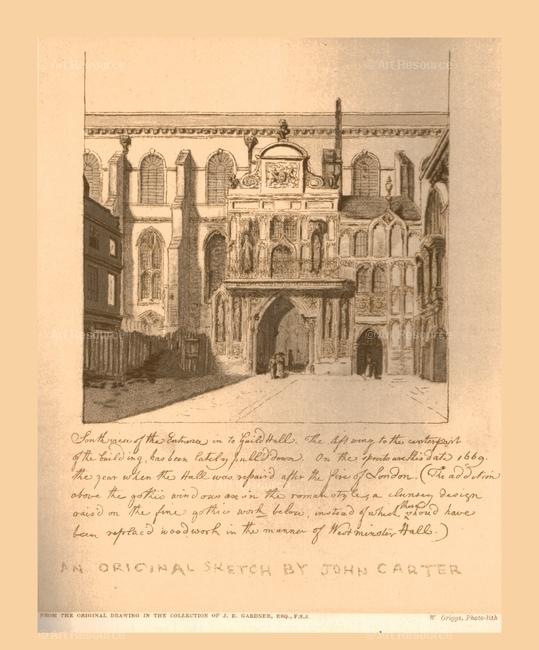 South view of the Entrance in to Guild Hall. The left wing to the center part
of the building, has been lately pulled down. On the spouts are this date 1669.
the year when the Hall was repair'd after the fire of London. (The addition
above the gothic windows are in the roman style, a clumsey design
raisd on the fine gothic work below, instead of which there shoud have
been replaced woodwork in the manner of Westminster Hall.)
AN ORIGINAL SKETCH BY JOHN CARTER
FROM THE ORIGINAL DRAWING IN THE COLLECTION OF J. E. GARDNER, ESQ., F.S.A.
W. Griggs, Photo-lith